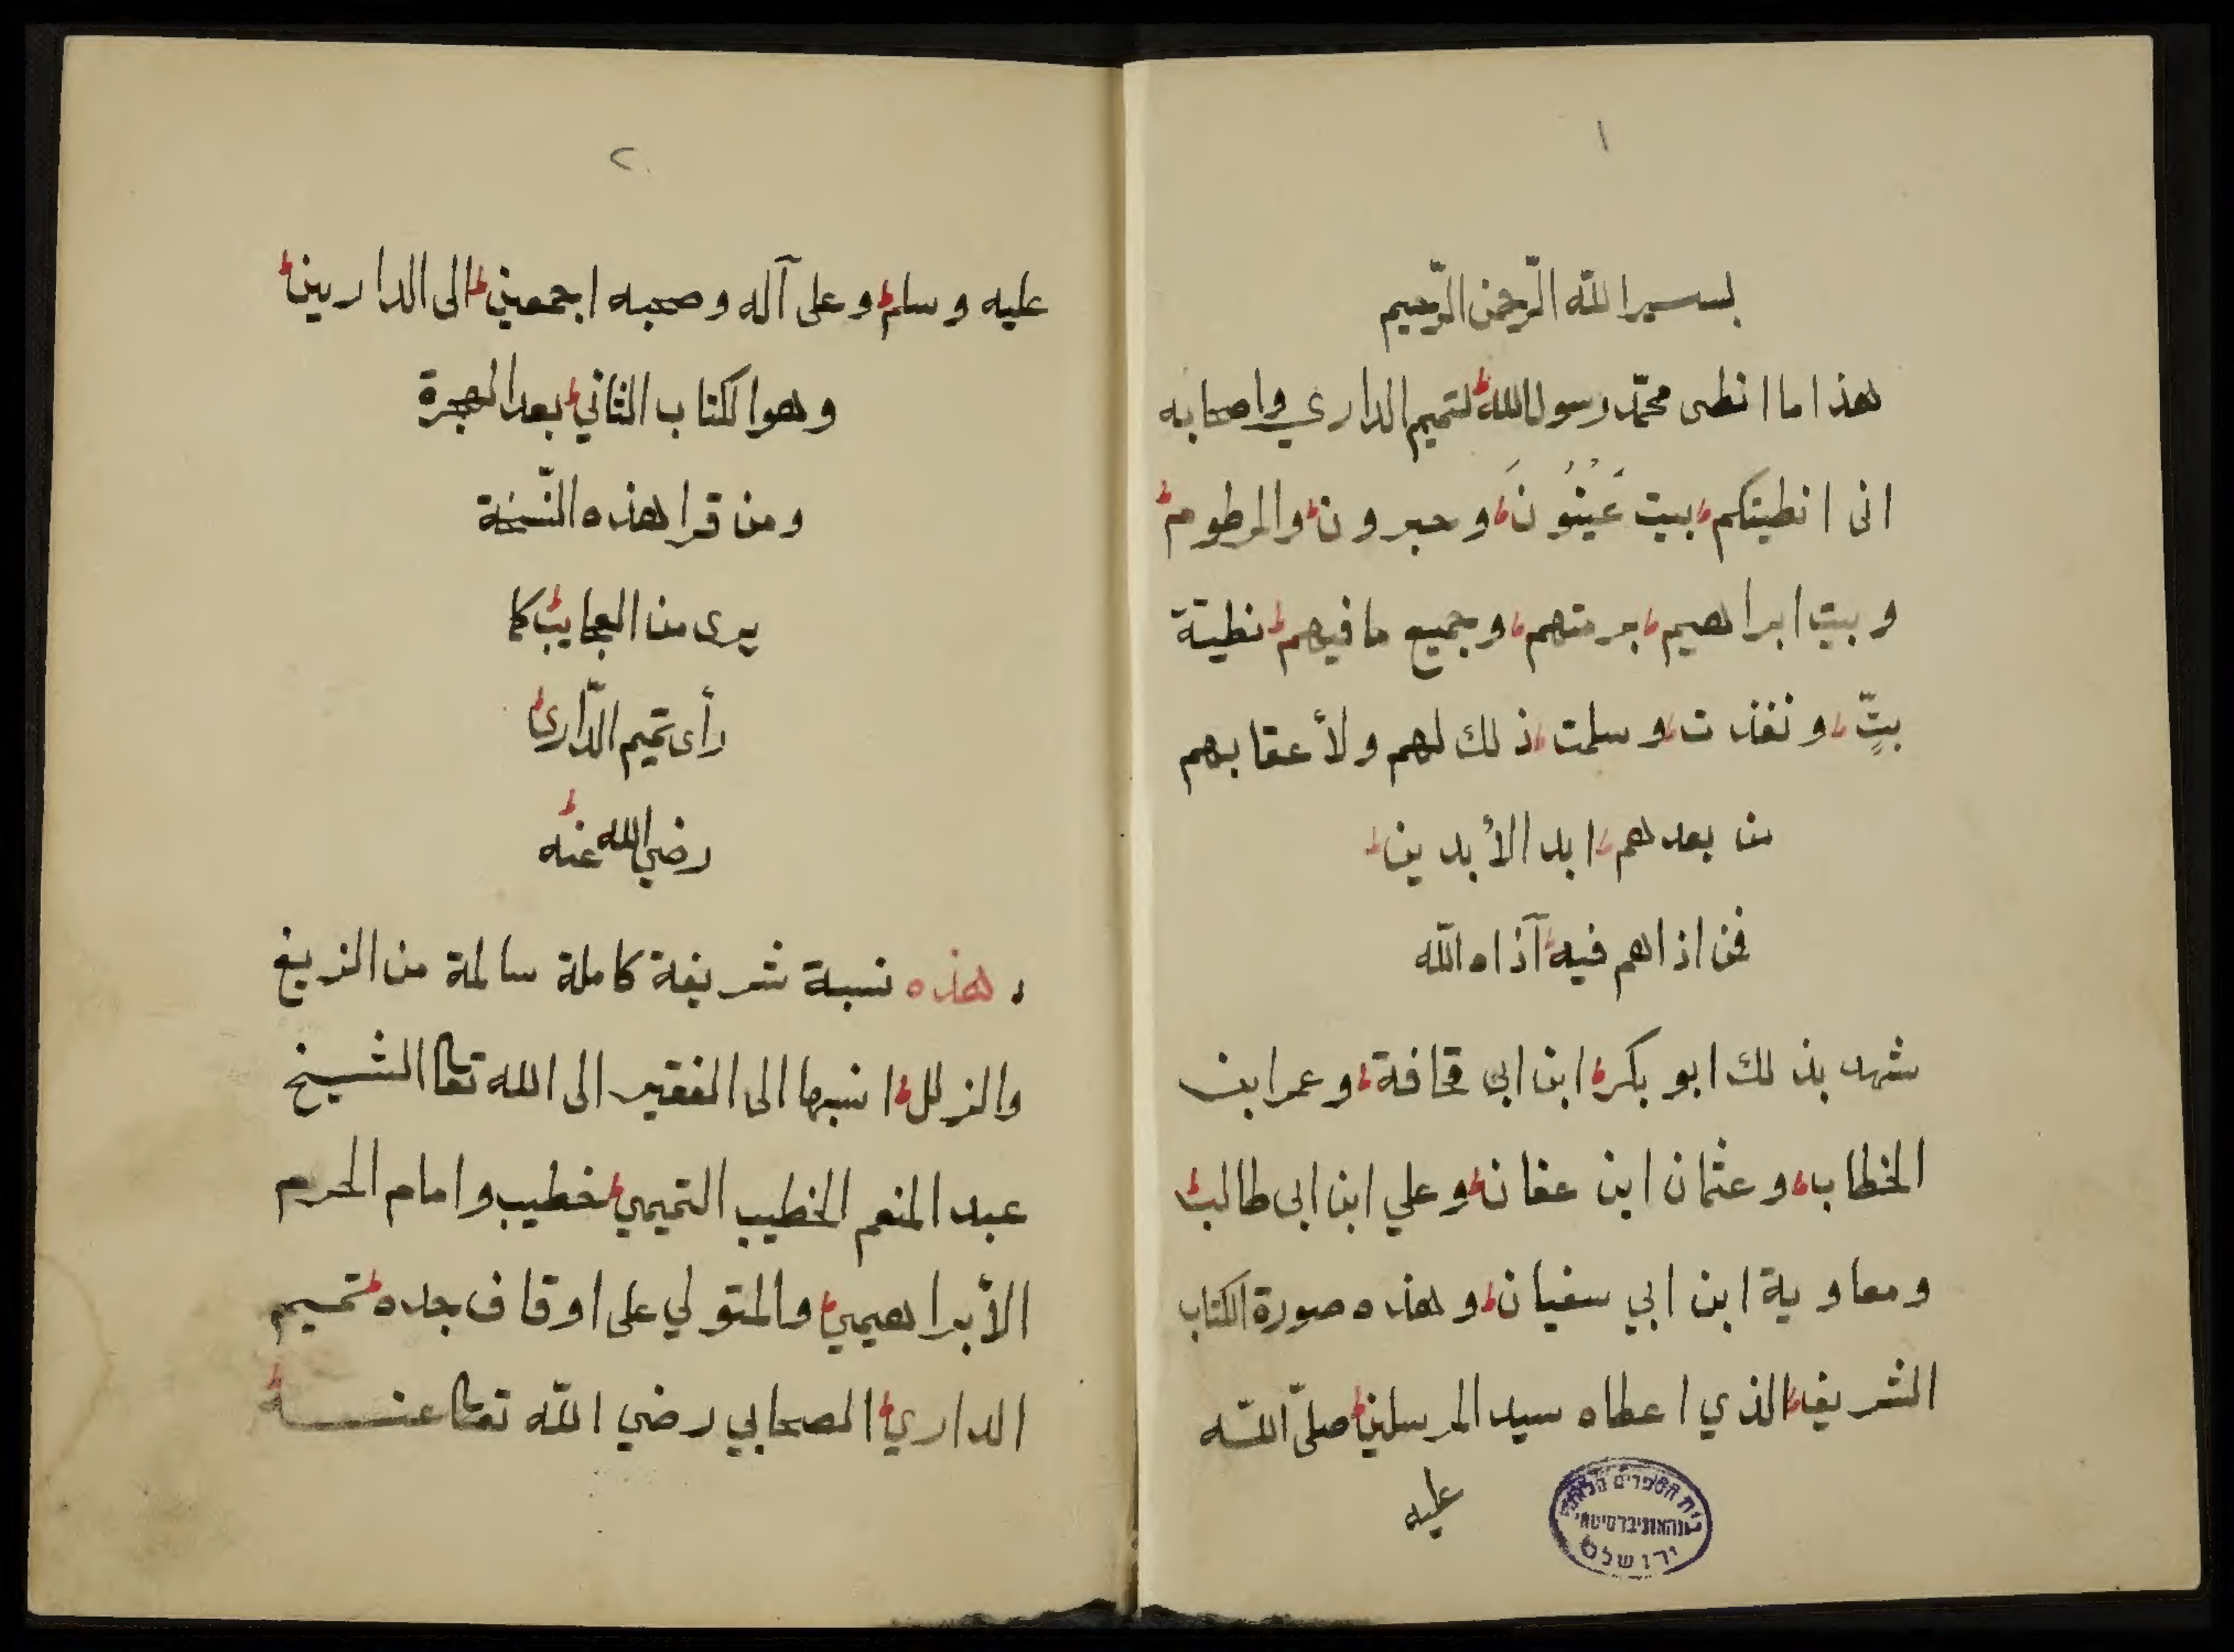 ١
بسم الله الرّحمن الرّحيم
هذا ما انطى محمّد رسول الله لتميم الداري واصحابه
انى انطيتكم بيت عَيْنُونَ وحبرون والمرطوم
وبيت ابراهيم برمتهم وجميع ما فيهم نطيّة
بتٍّ ونفذت وسلمت ذلك لهم ولأعقابهم
من بعدهم ابد الأبدين
فمن اذاهم فيه آذاه الله
شهد بذلك ابو بكر ابن ابى قحافة وعمر ابن
الخطاب وعثمان ابن عفان وعلي ابن ابى طالب
ومعاوية ابن ابي سفيان وهذه صورة الكتاب
الشريف الذي اعطاه سيد المرسلين صلّى الله
عليه
בית הספרים הלאומי
והאוניברסיטאי
ירושלם
٢
عليه وسلم وعلى آله وصحبه اجمعين الى الداريين
وهو الكتاب الثاني بعد الهجرة
ومن قرا هذه النّسخة
يرى من العجايب كما
رأى تميم الدّارى
رضي الله عنه
وهذه نسبة شريفة كاملة سالمة من الزيغ
والزلل انسبها الى الفقير الى الله تعا الشيخ
عبد المنعم الخطيب التميمي خطيب وامام الحرم
الأبراهيمي والمتولي على اوقاف جده تميم
الداري الصحابي رضي الله تعا عنه